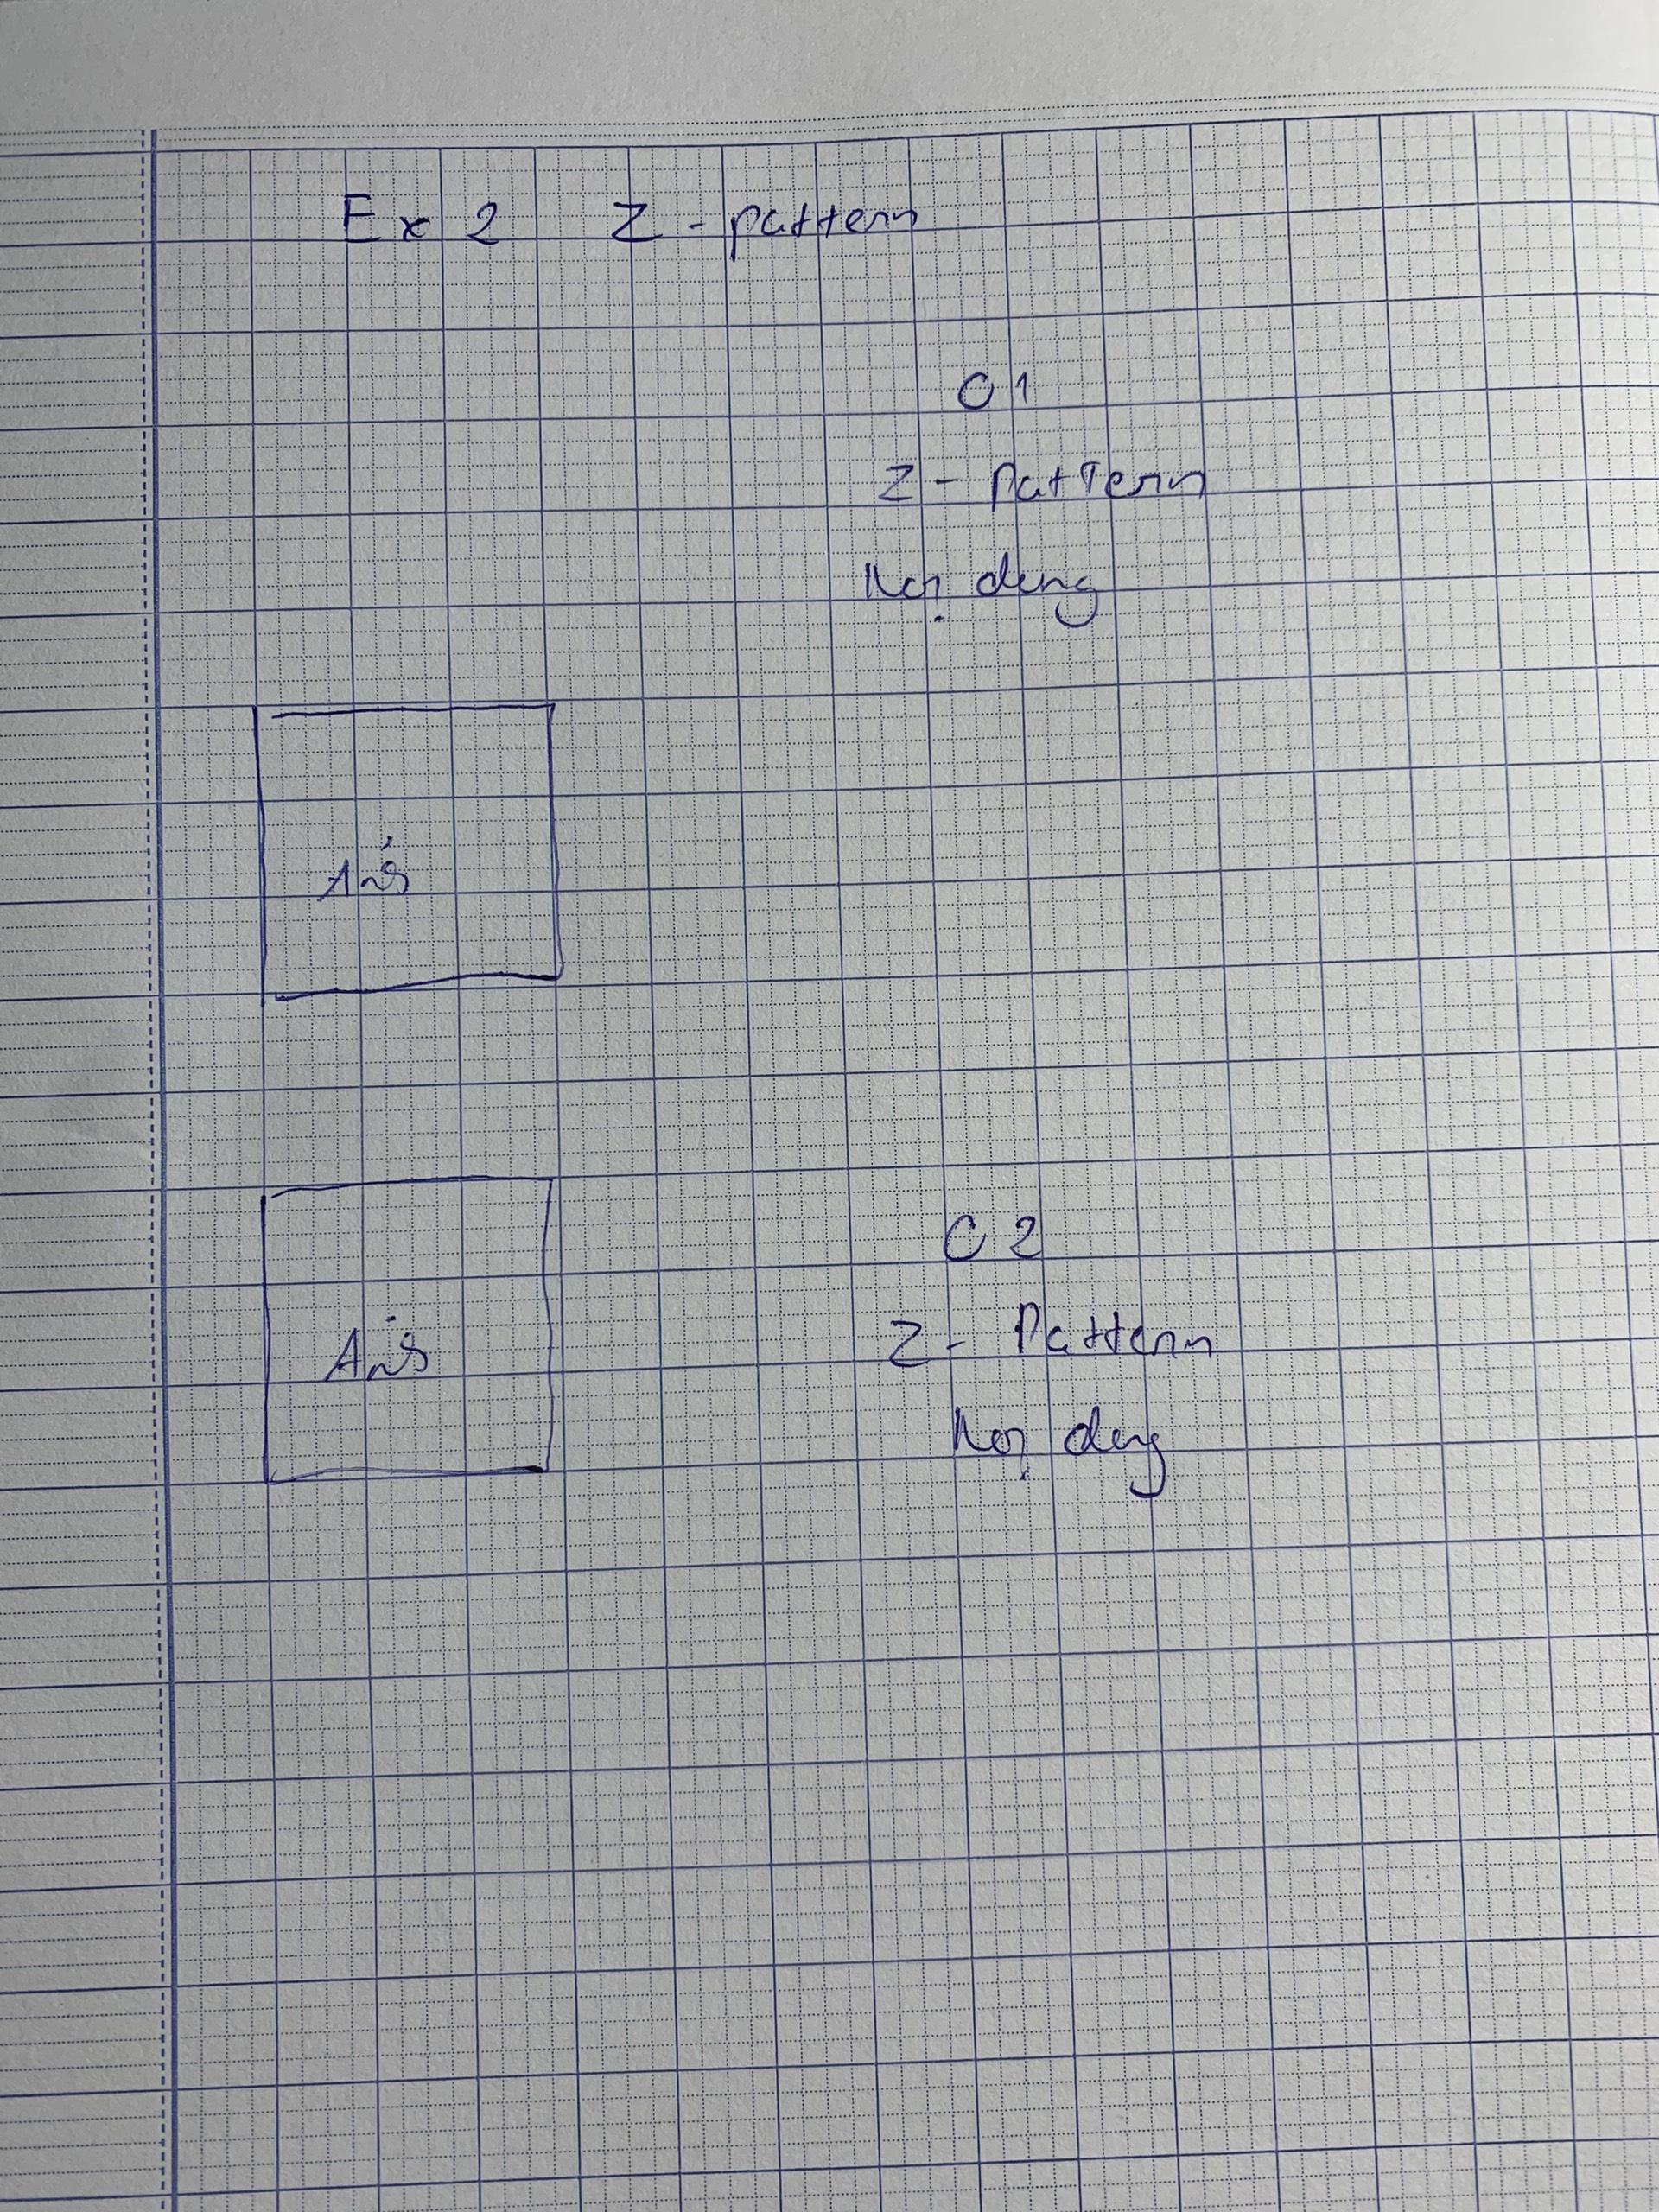 Ex 2 Z - pattern
01
Z - Pattern
Nội dung
Ảnh
C2
Z - Pattern
Ảnh
Nội dung